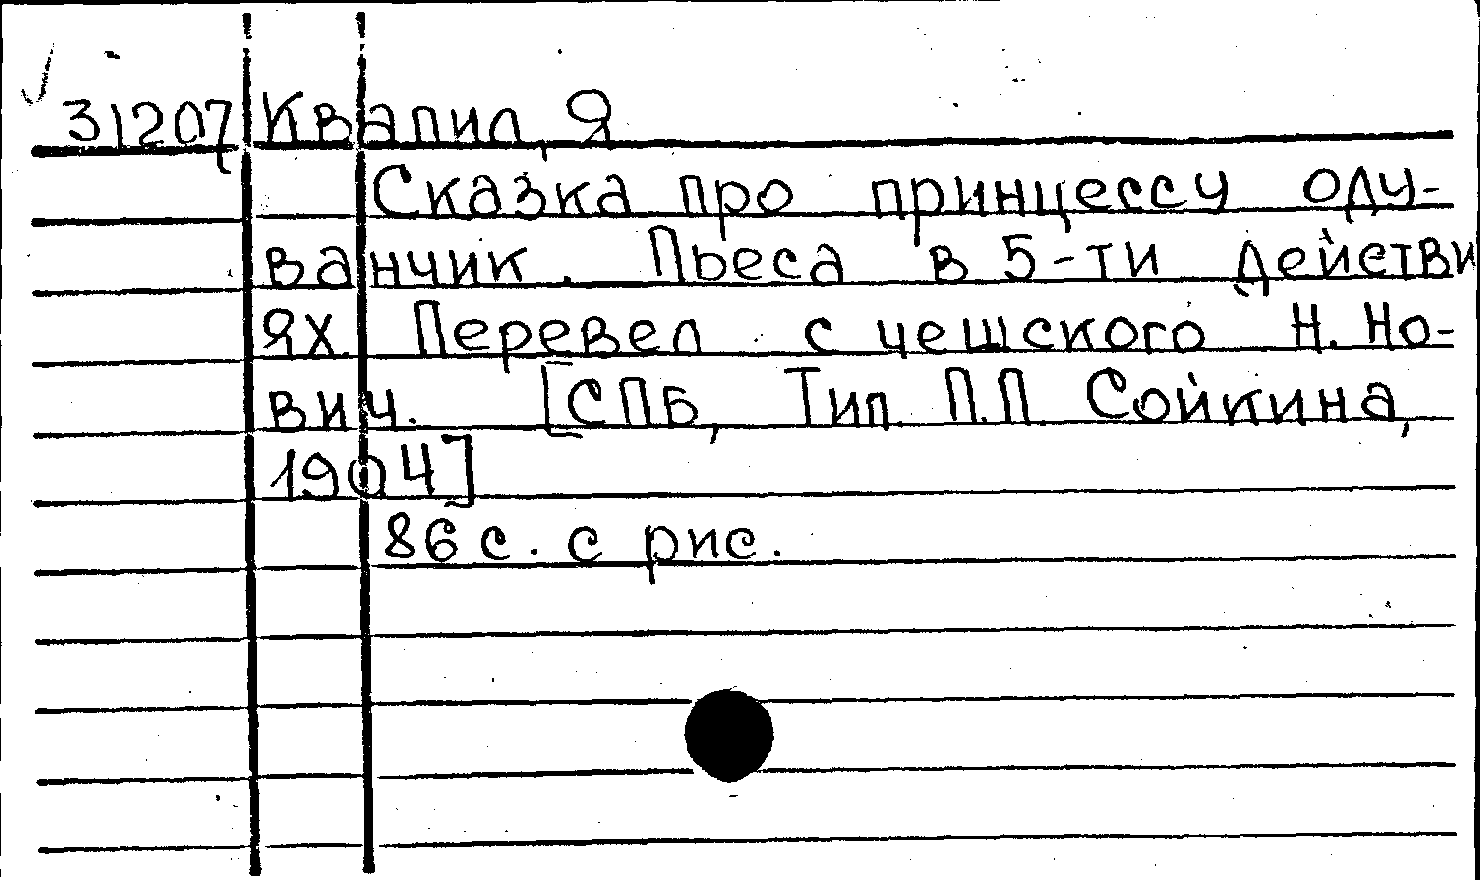 31207 Квапил, Я
Сказка про принцессу оду-
ванчик. Пьеса в 5-ти действи
ях. Перевел с чешского Н. Но-
вич. [СПБ, Тип. П.П. Сойкина,
1904]
86 с. с рис.